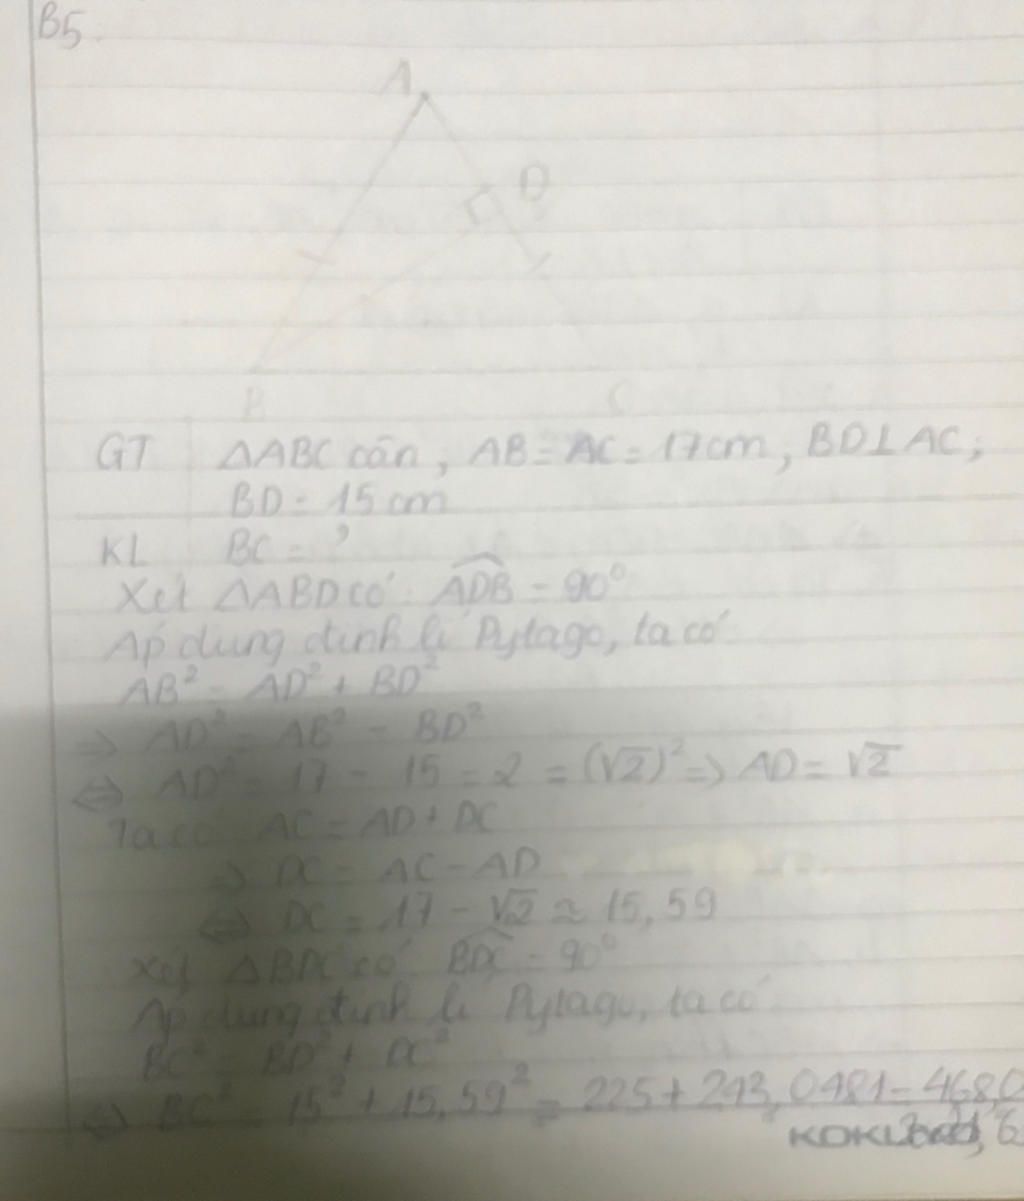 B5.
A
D
B C
GT ΔABC cân, AB = AC = 17cm, BD⊥AC;
BD = 15 cm
KL BC = ?
Xét ΔABD có: ADB = 90°
Áp dụng định lí Pytago, ta có
AB² = AD² + BD²
=> AD² = AB² - BD²
<=> AD² = 17 - 15 = 2 = (√2)² => AD = √2
Ta có AC = AD + DC
=> DC = AC - AD
<=> DC = 17 - √2 ≈ 15,59
Xét ΔBDC có BDC = 90°
Áp dụng định lí Pytago, ta có
BC² = BD² + DC²
<=> BC² = 15² + 15,59² = 225 + 243,0481 = 468,0